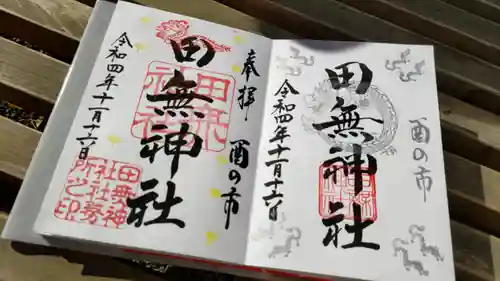 奉拝
酉の市
田無神社
令和四年十一月十六日
田無神
社社務
所之印
酉の市
田無神社
令和四年十一月十六日